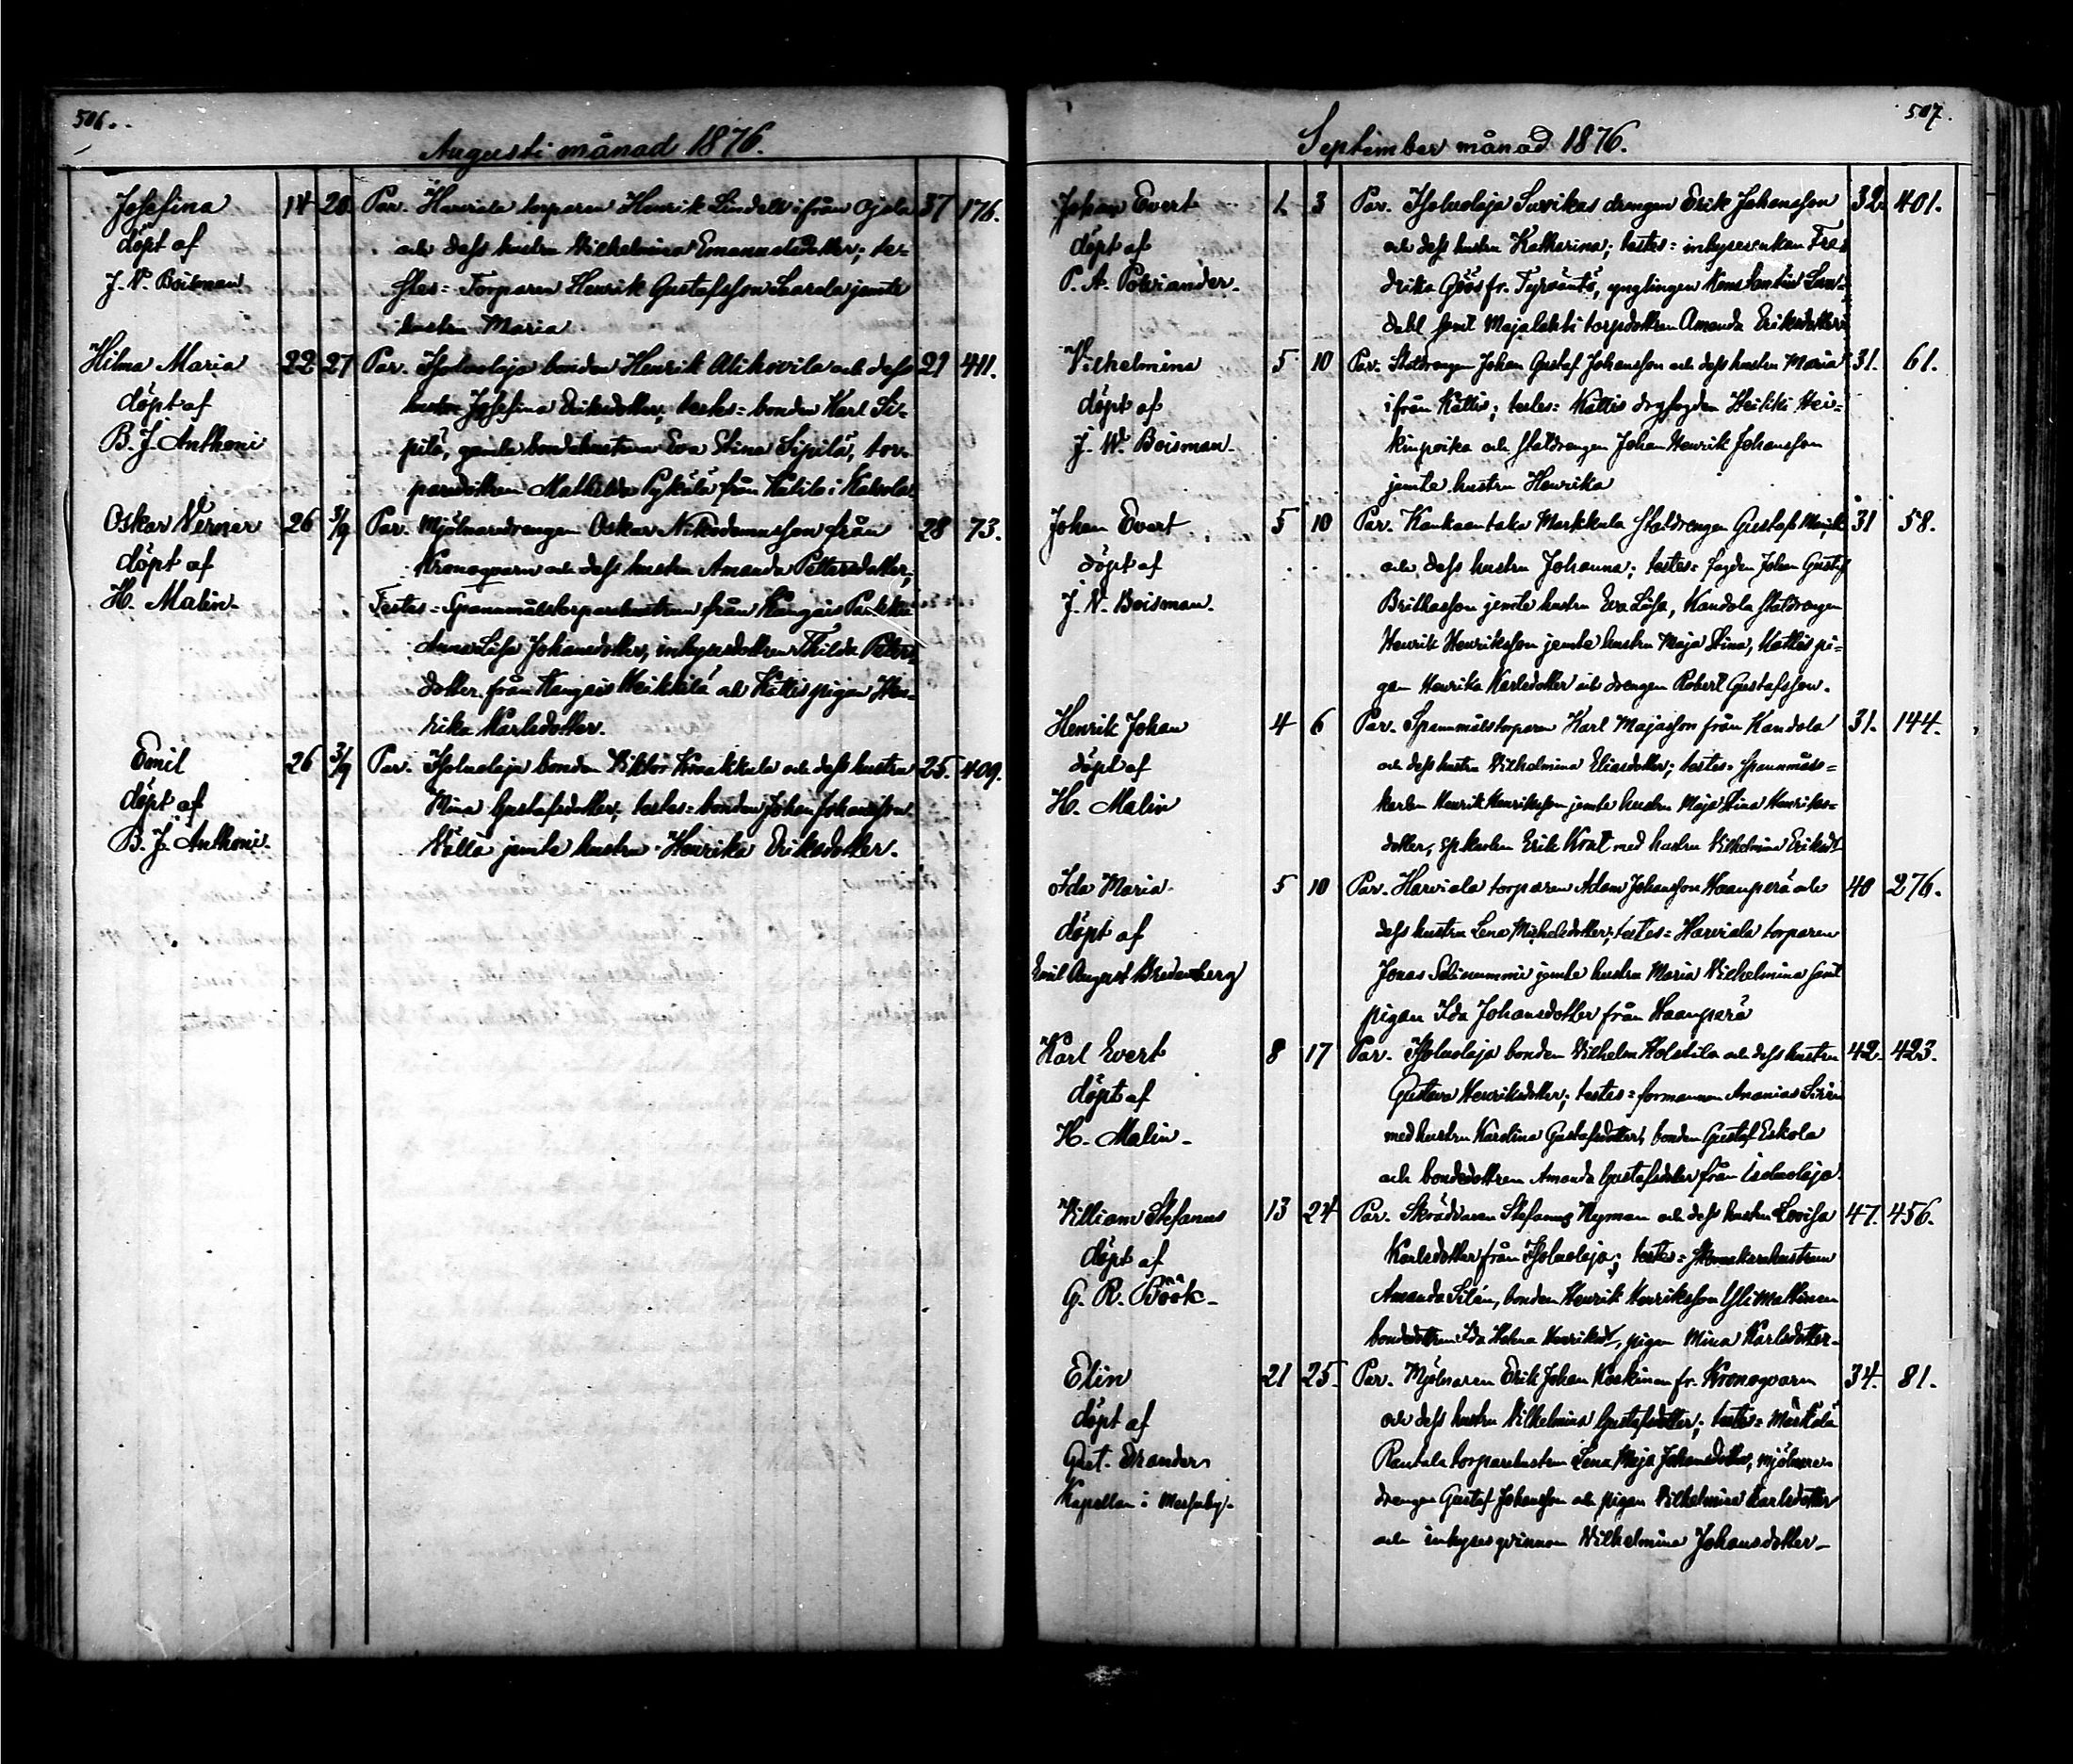 506.
Augusti månad 1876.
Josefina 14 20 Par. Harviala torparen Henrik Lindell ifrån Ojala 37 176.
döpt af och dess hustru Vilhelmina Emanuelsdotter; te-
J. V. Boisman stes = Torparen Henrik Gustafsson Saarela jemte
hustru Maria
Hilma Maria 22 27 Par. Isoluolaja bonden Henrik Alikovila och dess 21 411.
döpt af hustru Josefina Eriksdotter; testes = bonden Karl Si-
B. J. Anthoni pilä, gamla bondehustrun Eva Stina Sipilä, tor-
paredottren Mathilda Pykälä från Katila i Kalvola
Oskar Verner 26 3/9 Par. Mjölnardrengen Oskar Nikodemusson från 28 73.
döpt af Kronoqvarn och dess hustru Amanda Pettersdotter;
H. Malin. Testes = Spannmålstorparehustrun från Kangais
Anna Lisa Johansdotter, inhysesdottren Thilda Peters-
dotter från Kangais Heikkilä och Kättis pigan Hen-
rika Karlsdotter.
Emil 26 3/9 Par. Isoluolaja bonden Viktor Knaakkala och dess hustru 25. 409.
döpt af Mina Gustafsdotter; testes = bonden Johan Johansson
B. J. Anthoni. jemte hustru Henrika Eriksdotter.
507.
September månad 1876.
Johan Evert 1. 3 Par. Isoluolaja drengen Erik Johansson 32. 401.
döpt af och dess hustru Katharina; testes = inhysesenkan Fre-
P. A. Polviander. drika Göös fr. Tyrväntö, ynglingen Konstantin Lan-
dahl samt Majalahti torpdottren Amanda Eriksdotter
Vilhelmina 5 10 Par. Statdrengen Johan Gustaf Johansson och dess hustru Maria 31. 61.
döpt af ifrån Kättis; testes = Kättis Heikki Hei-
J. W. Boisman. kinpoika och statdrengen Johan Henrik Johansson
jemte hustru Henrika
Johan Evert 5 10 Par. Kankaantaka Markkula statdrengen Gustaf 31 58.
döpt af och dess hustru Johanna; testes = fogden Johan Gustaf
J. V. Boisman. jemte hustru Eva Lisa, Kandola statdrengen
Henrik Henriksson jemte hustru Maja Stina, Kättis pi-
gan Henrika Karlsdotter och drengen Robert Gustafsson.
Henrik Johan 4 6 Par. Spannmålstorparen Karl Majasson från Kandola 31. 144.
döpt af och dess hustru Vilhelmina Eliasdotter; testes = spannmåls-
H. Malin karlen Henrik Henriksson jemte hustru Maja Stina Henriks-
dotter, Erik med hustru Vilhelmina Eriksdr
Ida Maria 5 10 Par. Harviala torparen Adam Johansson Haanperä och 40 276.
döpt af dess hustru Lena Michelsdotter; testes = Harviala torparen
Emil August Bredenberg Jonas jemte hustru Maria Vilhelmina samt
pigan Ida Johansdotter från Haanperä
Karl Evert 8 17 Par. Isoluolaja bonden Vilhelm Kolstila och dess hustru 42. 423.
döpt af Gustava Henriksdotter; testes = formannen Ananias Sirén
H. Malin. med hustru Karolina Gustafsdotter, bonden Gustaf Eskola
och bondedottren Amanda Gustafsdoter från Isoluolaja.
Villiam Stefanus 13 24 Par. Skräddaren Stefanus Nyman och dess hustru Lovisa 47. 456.
döpt af Karlsdotter från Isoluolaja; testes = skomakarehustrun
G. R. Böök. Amanda Silén, bonden Henrik Henriksson Ylimattinen
bondedottren Ida Helena Henriksdr, pigan Mina Karlsdotter.
Elin 21 25. Par. Mjölnaren Erik Johan Koskinen fr. Kronoqvarn 34. 81.
döpt af och dess hustru Vilhelmina Gustafsdotter; testes =
Gust. Strander Rantala torparehustrun Lena Maja Johansdotter, mjölnare
Kapellan i Messuby. drengen Gustaf Johansson och pigan Vilhelmina Karlsdotter
och inhysesqvinnan Vilhelmina Johansdotter.